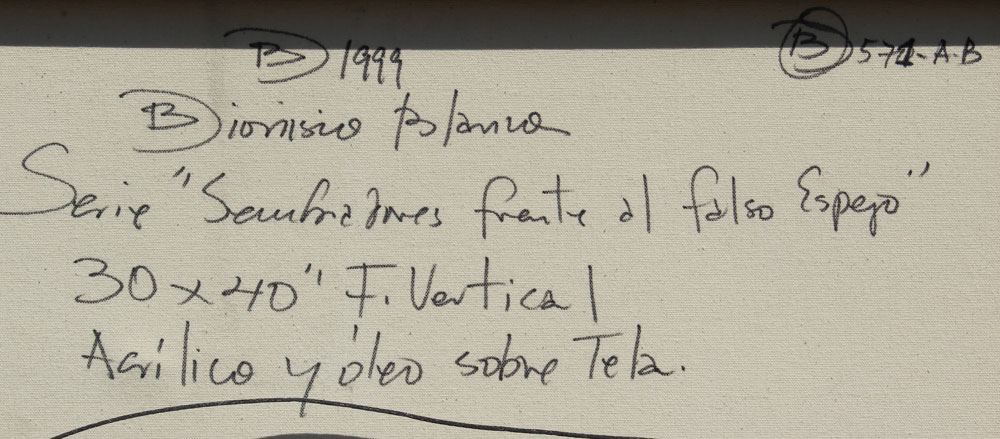 B 1999 B 571-A-B
Dionisio Blanco
Serie "Sembradores frente al falso Espejo"
30x40" F. Vertical
Acrílico y óleo sobre Tela.